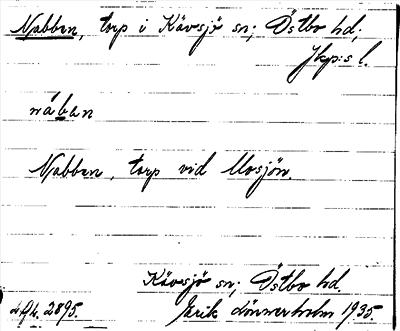 Nabben, torp i Kävsjö sn; Östbo hd;
Jkp:s l.
nában
Nabben, torp vid Mosjön.
Kävsjö sn; Östbo hd.
2895. Erik Lönnerholm 1935